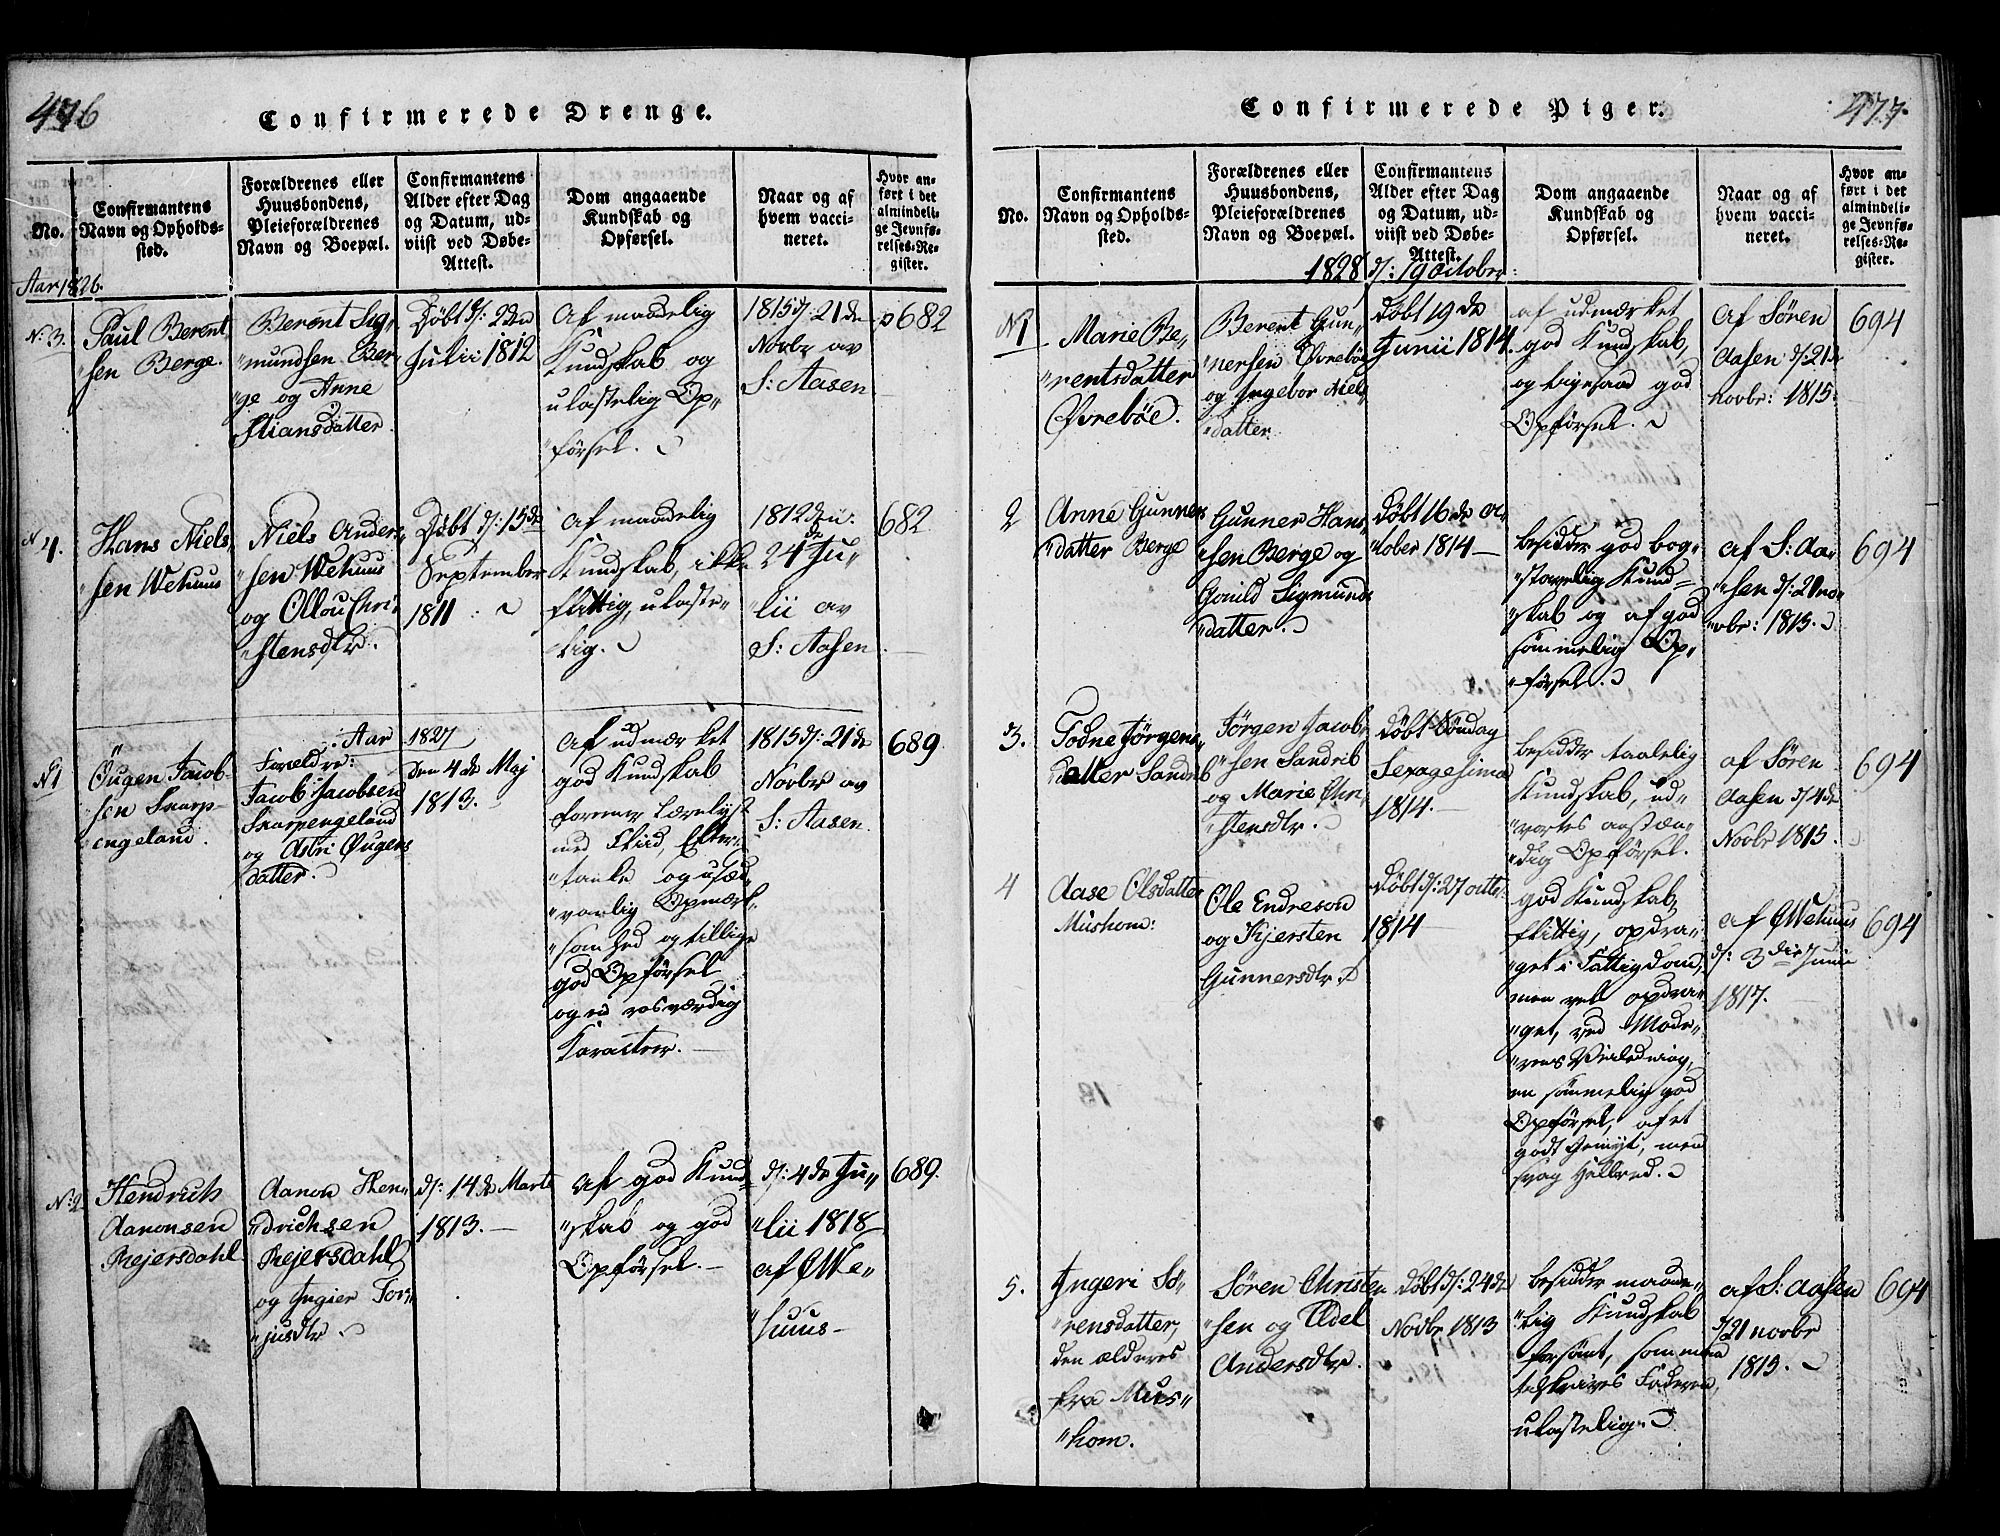 476
Confirmerede Drenge.
No.
Confirmantens
Navn og Opholds-
sted.
Forældrenes eller
Huusbondens,
Pleieforældrenes
Navn og Boepæl.
Confirmantens
Alder efter Dag
og Datum, ud-
viist ved Døbe-
Attest.
Dom angaaende
Kundskab og
Opførsel.
Naar og af
hvem vacci-
neret.
Hvor an-
ført i det
almindeli-
ge Jevnfø-
relses-Re-
gister.
Aar 1826.
No: 3.
Paul Berent„
„sen Berge.
Berent Sig„
„mundsen Ber„
„ge og Anne
Stiansdatter.
Døbt d: 2den
Julii 1812
Af maadelig
Kundskab og
ulastelig Op„
„førsel.
1815 d: 21de
Novbr av
S: Aasen
682
No 4.
Hans Niels„
„sen Wehuus
Niels Ander„
„sen Wehuus
og Ollou Chri„
„stensdtr.
Døbt d: 15de
September
1811
Af maadelig
Kundskab, ikke
flittig, ulaste„
lig.
1812 den
24de Ju„
„lii av
S: Aasen
682
Aar 1827
No 1
Øugen Jacob„
sen Skarp„
engeland.
Foreldre:
Jacob Jacobsen
Skarpengeland
og Asbri Øugens
datter.
Den 4de Maj
1813.
Af udmærket
god Kundskab
forener Lærelyst
med Fliid, Efter„
„tanke og usæd„
„vanlig Opmærk„
„somhed og tillige
god Opførsel
og en rosværdig
Karacteer.
1815 d: 21de
Novbr av
S: Aasen.
689.
No: 2
Hendrich
Aanonsen
Rejersdahl.
Aanon Hen„
„drichsen
Rejersdahl
og Ingier Tor„
„jusdtr
d: 14de Marts
1813.
Af god Kund„
„skab og god
Opførsel.
d: 4de Ju„
„lii 1818
af O We„
„huus
689.
477.
Confirmerede Piger.
No.
Confirmantens
Navn og Opholds-
sted.
Forældrenes eller
Huusbondens,
Pleieforældrenes
Navn og Boepæl.
Confirmantens
Alder efter Dag
og Datum, ud-
viist ved Døbe-
Attest.
Dom angaaende
Kundskab og
Opførsel.
Naar og af
hvem vacci-
neret.
Hvor an-
ført i det
almindeli-
ge Jevnfø-
relses-Re-
gister.
1828 d: 19 October:
No 1
Marie Be„
„rentsdatter
Øvrebøe.
Berent Gun„
„nersen Øvrebøe
og Ingebor Niels
„datter.
Døbt 19de
Junii 1814.
af udmærket
god Kundskab,
og ligesaa god
Opførsel.
Af Søren
Aasen d: 21de
novbr: 1815
694
2
Anne Gunners
„datter Berge
Gunner Hans„
„sen Berge og
Gonild Sigmunds
„datter.
Døbt 16de Oc„
„tober 1814
besidder god bog„
„stavelig Kund„
„skab og af god
sømmelig Op„
„førsel.
af S: Aa„
„sen d: 21 no„
„vbr: 1815.
694
3.
Todne Jørgens„
datter Sandrib
Jørgen Jacob„
„sen Sandrib
og Marie Chri„
„stensdtr.
Døbt Søndag
Sexagesima
1814.
besidder taalelig
Kundskab, ud„
„vortes anstæn„
„dig Opførsel.
af Søren
Aasen d: 4de
Novbr 1815.
694
4
Aase Olsdatter
Mushom:
Ole Endreson
og Kjersten
Gunnersdtr.
Døbt d: 27 octbr:
1814
god Kundskab,
flittig, opdra„
„get i Fattigdom,
men vel opdra„
„get, ved Mode„
„rens Veiledning,
en sømmelig god
Opførsel, af et
godt Gemyt, men
svag Helbred.
af O Wehuus
d: 3die Junii
1817.
694
5.
Ingeri Sø„
„rensdatter,
den ælderes
fra Mus„
„hom.
Søren Christen„
„sen og Eldel
Andersdtr.
Døbt d: 24de
Novbr 1813
besidder maade„
„lig Kundskab
forsømt, som maa
tilskrives Faderen,
ulastelig.
af S: Aasen
d/ 21 novbr
1815.
694